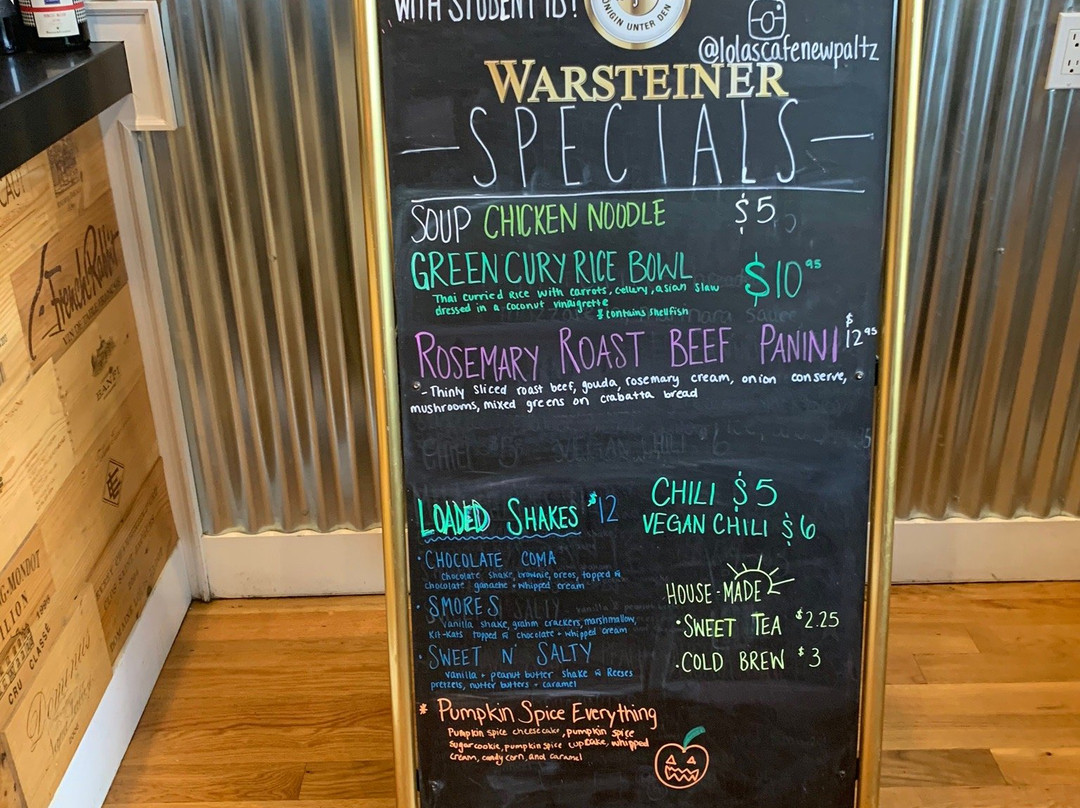 WITH STUDENT ID!
KÖNIGIN UNTER DEN
@lolascafenewpaltz
WARSTEINER
-SPECIALS-
SOUP CHICKEN NOODLE $5
GREEN CURY RICE BOWL $10 95
Thai curried Rice with carrots, cellery, asian slaw
dressed in a coconut vinaigrette
* contains shellfish
ROSEMARY ROAST BEEF PANINI $12 95
- Thinly sliced roast beef, gouda, rosemary cream, onion conserve,
mushrooms, mixed greens on crabatta bread
CHILI $5
VEGAN CHILI $6
LOADED SHAKES $12
• CHOCOLATE COMA
chocolate shake, brownie, oreos, topped w
chocolate ganache + whipped cream
• SMORES
Vanilla shake, grahm crackers, marshmallow,
Kit-Kats topped w chocolate + whipped cream
• SWEET N' SALTY
Vanilla + peanut butter shake w Reeses
pretzels, nutter butters + caramel
HOUSE-MADE
• SWEET TEA $2.25
• COLD BREW $3
* Pumpkin Spice Everything
Pumpkin spice cheesecake, pumpkin spice
sugar cookie, pumpkin spice cupcake, whipped
cream, candy corn, and caramel
French Rabbit
G. MONDOT
CRU CLASSÉ